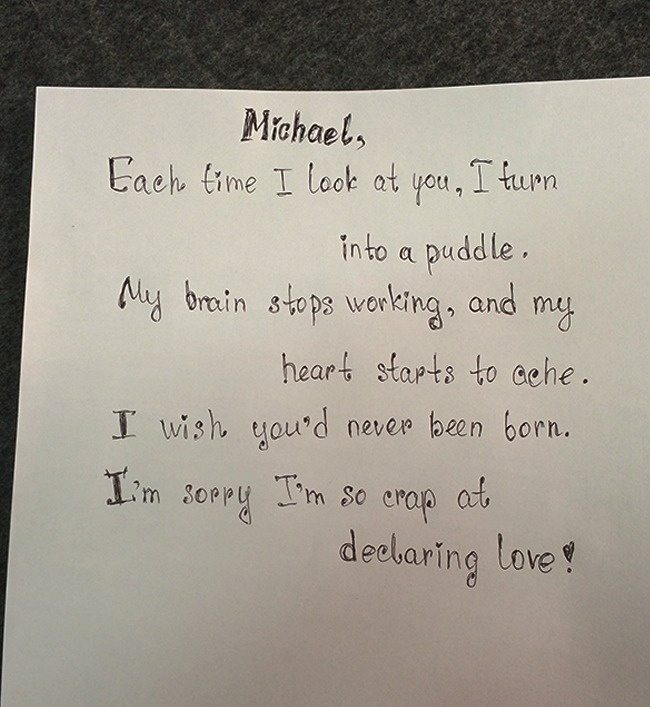 Michael,
Each time I look at you, I turn
into a puddle.
My brain stops working, and my
heart starts to ache.
I wish you'd never been born.
I'm sorry I'm so crap at
declaring love!